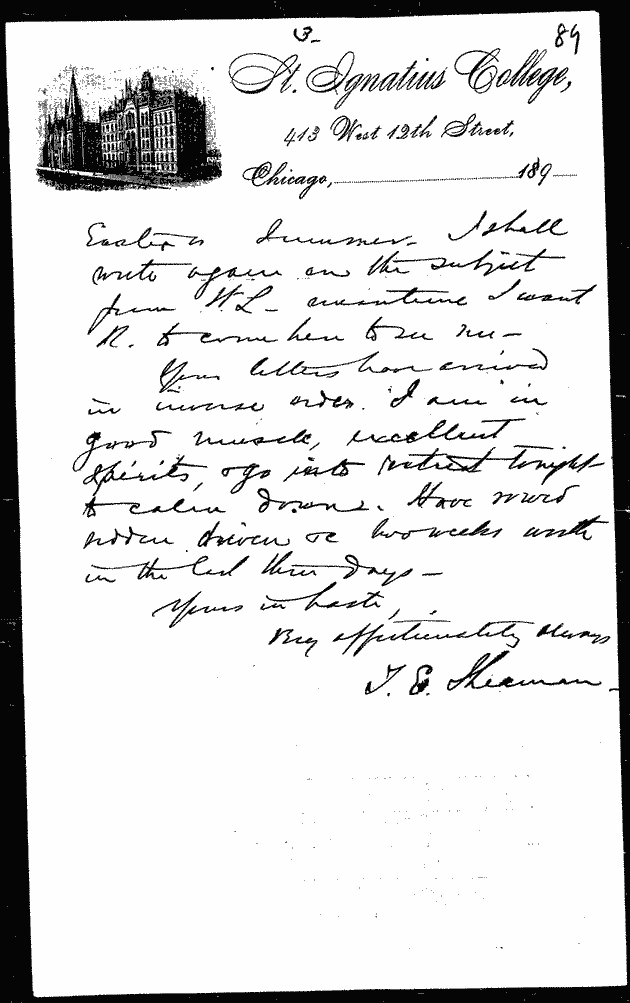 3-
89
St. Ignatius College,
413 West 12th Street,
Chicago, 189
Easter or Summer. I shall
write again on the subject
from St L - meantime I want
R. to come here to see me -
Your letters have arrived
in inverse order. I am in
good muscle, excellent
spirits, & go into retreat tonight
to calm down. Have rowed
ridden driven &c two weeks worth
in the last three days -
Yours in haste,
Very affectionately always
T. E. Sherman